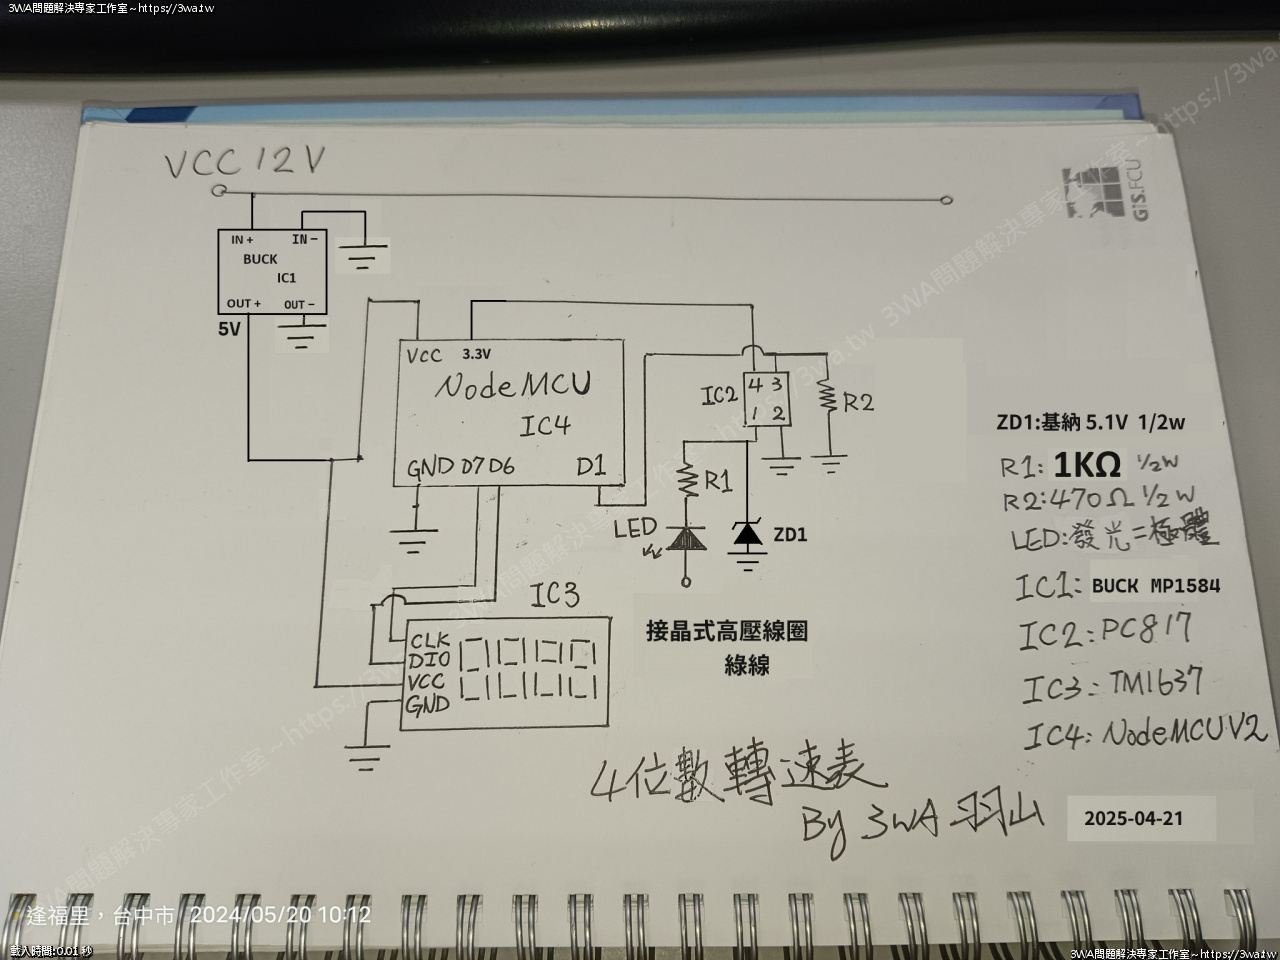 3WA問題解決專家工作室~https://3wa.tw
VCC 12V
GIS.FCU
IN + IN −
BUCK
IC1
OUT + OUT −
5V
VCC 3.3V
NodeMCU
IC4
GND D7 D6 D1
IC2
4 3
1 2
R2
R1
LED
ZD1
接晶式高壓線圈
綠線
IC3
CLK
DIO
VCC
GND
ZD1:基納 5.1V 1/2w
R1: 1KΩ ½W
R2:470Ω ½W
LED:發光二極體
IC1: BUCK MP1584
IC2:PC817
IC3:TM1637
IC4:NodeMCUV2
4位數轉速表
By 3WA 羽山
2025-04-21
逢福里，台中市 2024/05/20 10:12
載入時間:0.01 秒
3WA問題解決專家工作室~https://3wa.tw
3WA問題解決專家工作室~https://3wa.tw
3WA問題解決專家工作室~https://3wa.tw